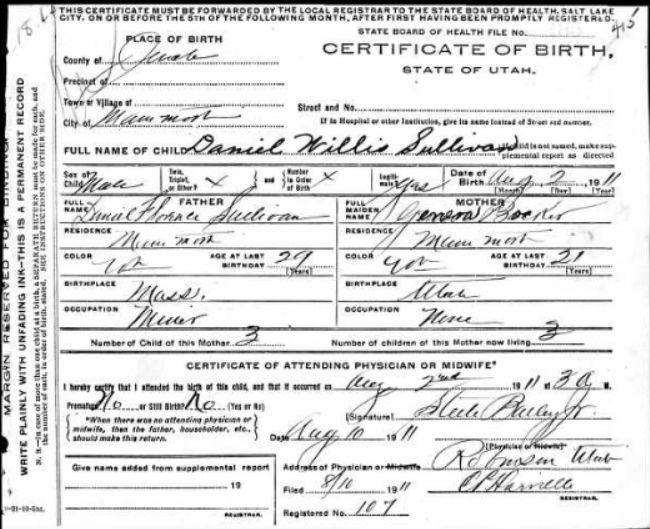 THIS CERTIFICATE MUST BE FORWARDED BY THE LOCAL REGISTRAR TO THE STATE BOARD OF HEALTH, SALT LAKE
CITY, ON OR BEFORE THE 5TH OF THE FOLLOWING MONTH, AFTER FIRST HAVING BEEN PROMPTLY REGISTERED.
STATE BOARD OF HEALTH FILE No.
415
PLACE OF BIRTH
CERTIFICATE OF BIRTH.
STATE OF UTAH.
County of Juab
Precinct of
Town or Village of
Street and No.
City of Mammoth
If in Hospital or other Institution, give its name instead of Street and number.
FULL NAME OF CHILD Daniel Willis Sullivan
If child is not named, make supplemental report as directed
Sex of Child Male
Twin, Triplet, or Other? X
and Number in Order of Birth X
Legitimate Yes
Date of Birth Aug 2 1911
(Month) (Day) (Year)
FATHER
MOTHER
FULL NAME Daniel Florence Sullivan
FULL MAIDEN NAME Geneva
RESIDENCE Mammoth
RESIDENCE Mammoth
COLOR AGE AT LAST BIRTHDAY 29 (Years)
COLOR AGE AT LAST BIRTHDAY 21 (Years)
BIRTHPLACE Mass.
BIRTHPLACE Utah
OCCUPATION Miner
OCCUPATION None
Number of Child of this Mother 3
Number of children of this Mother now living 3
CERTIFICATE OF ATTENDING PHYSICIAN OR MIDWIFE*
I hereby certify that I attended the birth of this child, and that it occurred on Aug 2nd 1911 at 3 a M.
Premature No or Still Birth? No (Yes or No)
(Signature) Steele Bailey Jr.
*When there was no attending physician or
midwife, then the father, householder, etc.,
should make this return.
Date Aug 10 1911
(Physician or Midwife)
Give name added from supplemental report
Address of Physician or Midwife Robinson Utah
19
Filed 8/10 1911
REGISTRAR.
REGISTRAR.
Registered No. 107
MARGIN RESERVED FOR BINDING
WRITE PLAINLY WITH UNFADING INK—THIS IS A PERMANENT RECORD
N. B.—In case of more than one child at a birth, a SEPARATE RETURN must be made for each, and
the number of each, in order of birth, stated. SEE INSTRUCTIONS ON OTHER SIDE.